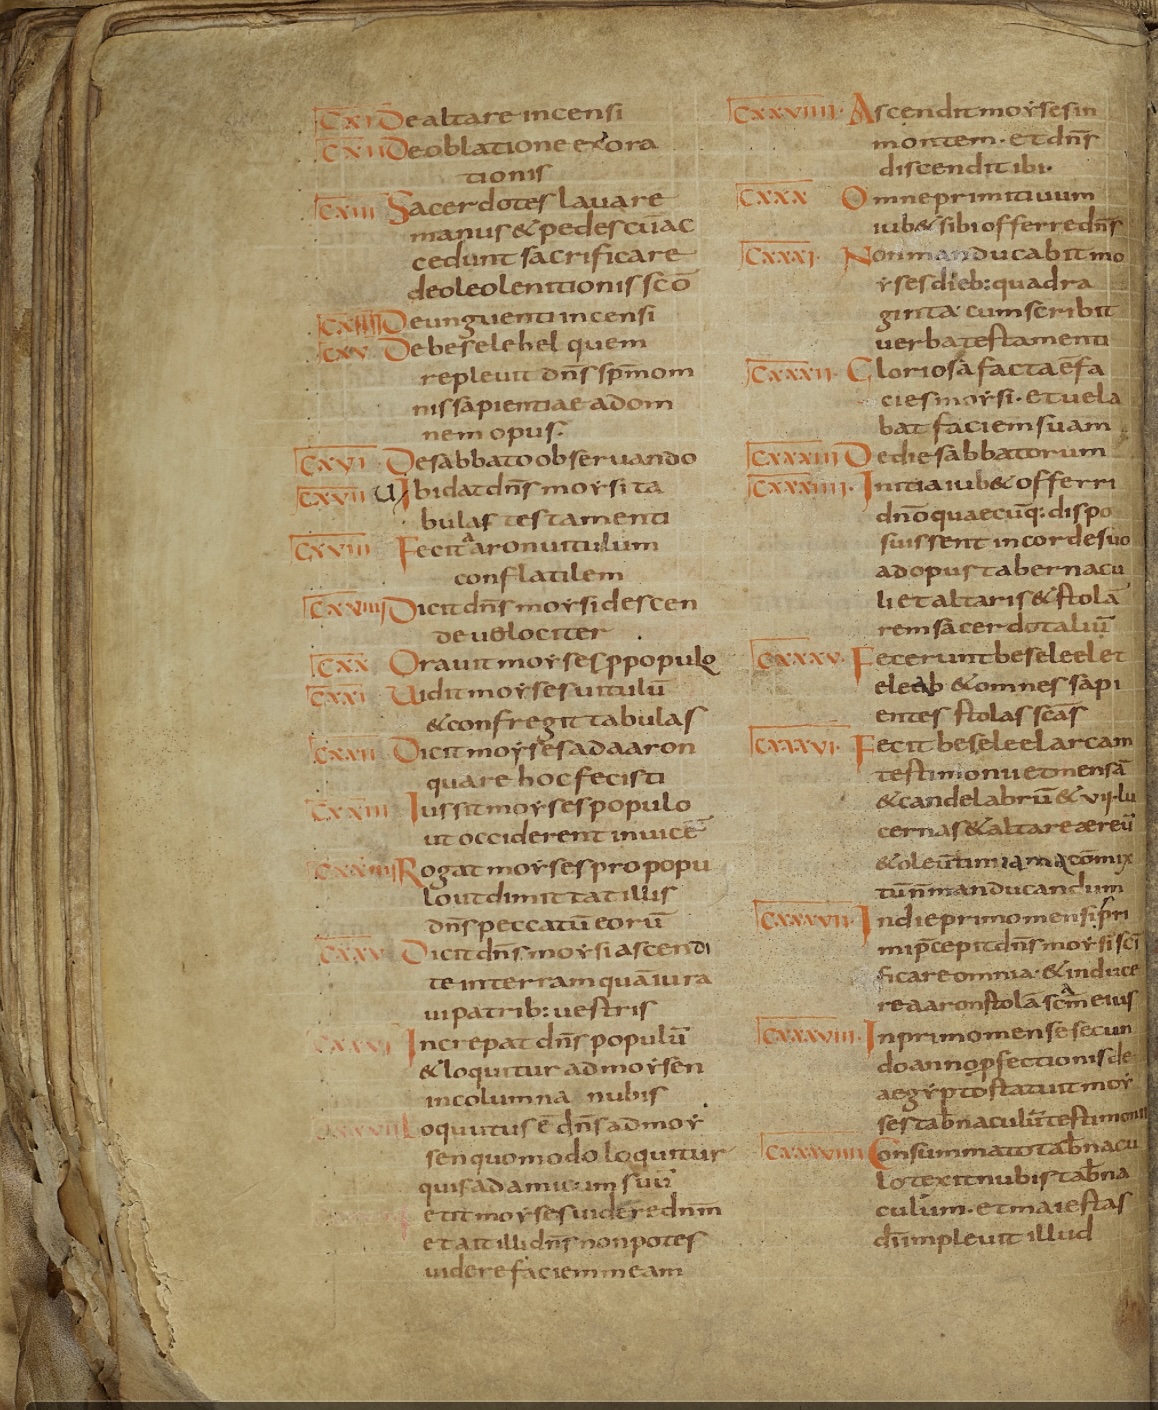 CXI De altare incensi
CXII De oblatione exora
tionis
CXIII Sacerdotes lauare
manus & pedes cū ac
cedunt sacrificare
de oleo lenitionis scō
CXIIII De unguenti incensi
CXV De beselehel quem
repleuit dn̄s sp̄m om
nis sapientiae ad om
nem opus.
CXVI De sabbato obseruando
CXVII Ubi dat dn̄s moẏsi ta
bulas testamenti
CXVIII Fecit aron uitulum
conflatilem
CXVIIII Dicit dn̄s moẏsi descen
de uelociter
CXX Orauit moẏses ꝓ populo
CXXI Uidit moẏses uitulū
& confregit tabulas
CXXII Dicit moẏses ad aaron
quare hoc fecisti
CXXIII Iussit moẏses populo
ut occiderent inuicē
CXXIIII Rogat moẏses pro popu
lo ut dimittat illis
dn̄s peccatū eorū
CXXV Dicit dn̄s moẏsi ascendi
te in terram quā iura
ui patrib: uestris
CXXVI Increpat dn̄s populū
& loquitur ad moẏsen
in columna nubis
CXXVII Loquutus ē dn̄s ad moẏ
sen quomodo loquitur
quis ad amicum suū
et it moẏses uidere dn̄m
et ait illi dn̄s non potes
uidere faciem meam
CXXVIIII. Ascendit moẏses in
montem. et dn̄s
discendit ibi.
CXXX Omne primitiuum
iub& sibi offerre dn̄s
CXXXI. Non manducabit mo
ẏses dieb: quadra
ginta cum scribit
uerba testamenti
CXXXII. Gloriosa facta ē fa
cies moẏsi. et uela
bat faciem suam
CXXXIII De die sabbatorum
CXXXIIII. Initia iub& offerri
dn̄o quaecūq: dispo
suissent in corde suo
ad opus tabernacu
li et altaris & stolā
rem sacerdotaliū
CXXXV. Fecerunt beseleel et
eleab & omnes sapi
entes stolas scās
CXXXVI. Fecit beseleel arcam
testimonii et mensā
& candelabrū & VII. lu
cernas & altare æreū
& oleū comix
tū manducandum
CXXXVII. In die primo mensi pri
mi p̄cepit dn̄s moẏsi scī
ficare omnia. & induce
re aaron stolā scām eius
CXXXVIII. In primo mense secun
do anno ꝓfectionis de
aegẏpto statuit moẏ
ses tab̄naculū testimonii
CXXXVIIII Consummato tab̄nacu
lo texit nubis tab̄na
culum. et maiestas
dn̄i impleuit illud